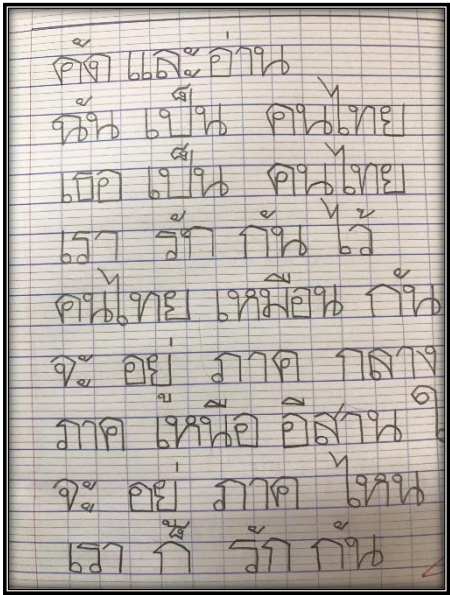 คัด และอ่าน
ฉัน เป็น คนไทย
เธอ เป็น คนไทย
เรา รัก กัน ไว้
คนไทย เหมือน กัน
จะ อยู่ ภาค กลาง
ภาค เหนือ อีสาน ใ
จะ อยู่ ภาค ไหน
เรา ก็ รัก กัน